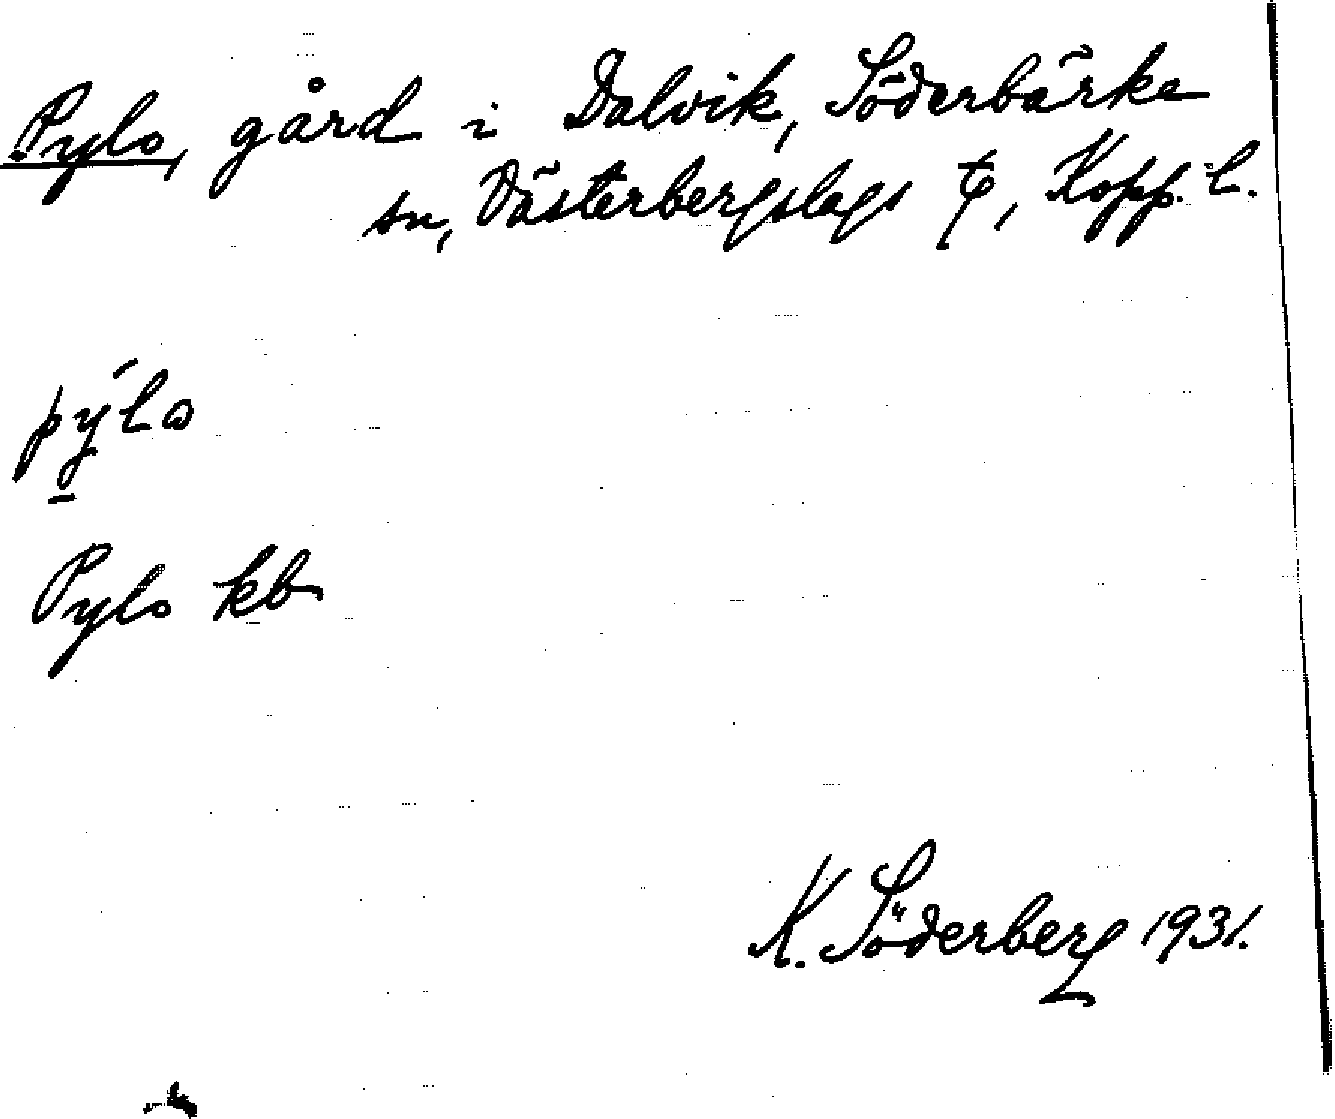 Pylo, gård i Dalvik, Söderbärke
sn, Västerbergslags tg, Kopp. l.
pýlo
Pylo kb
K. Söderberg 1931.